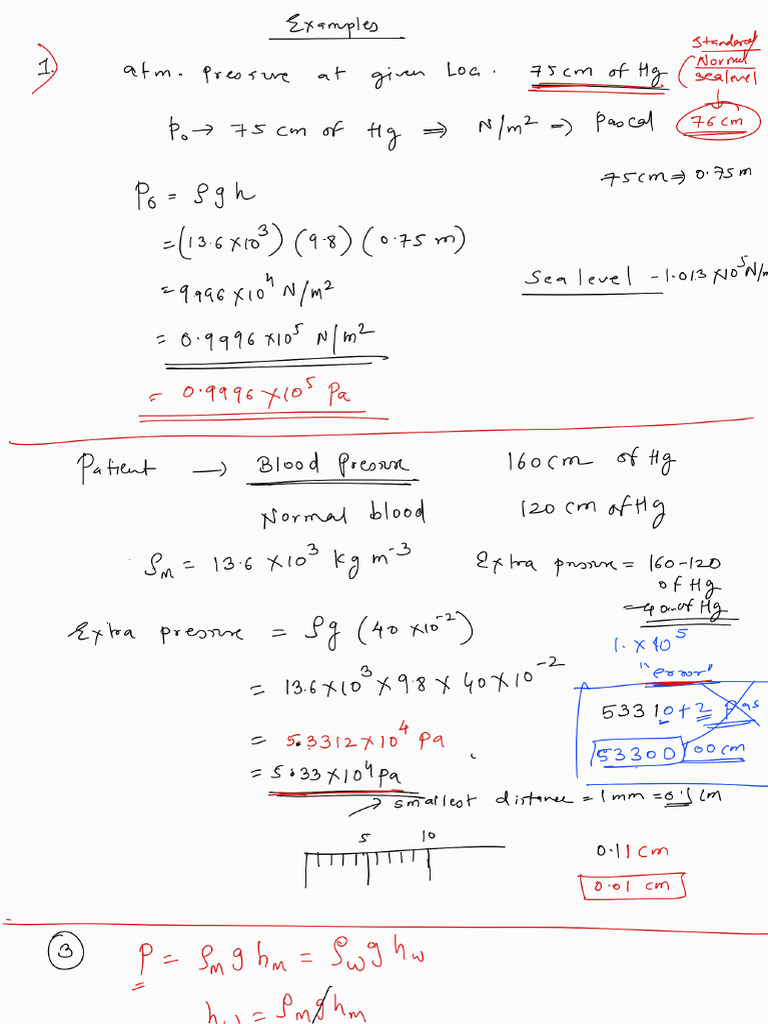 Examples
1. atm. pressure at given Loc. 75 cm of Hg (Standard
Normal
sea level
76 cm
P₀ → 75 cm of Hg ⇒ N/m² ⇒ Pascal
75 cm ⇒ 0.75 m
P₀ = ρ g h
= (13.6 × 10³) (9.8) (0.75 m)
= 9996 × 10⁴ N/m²
Sea level - 1.013 × 10⁵ N/m
= 0.9996 × 10⁵ N/m²
= 0.9996 × 10⁵ Pa
Patient → Blood Pressure 160 cm of Hg
Normal blood 120 cm of Hg
ρm = 13.6 × 10³ kg m⁻³
Extra pressure = 160-120
of Hg
= 40 of Hg
Extra pressure = ρg (40 × 10⁻²)
1. × 10⁵
"error"
= 13.6 × 10³ × 9.8 × 40 × 10⁻²
53310 + 2 Pas
= 5.3312 × 10⁴ Pa
53300 00 cm
= 5.33 × 10⁴ Pa
→ smallest distance = 1 mm = 0.1 cm
5 10
0.11 cm
0.01 cm
3 P = ρm g hm = ρw g hw
hw = ρm g hm